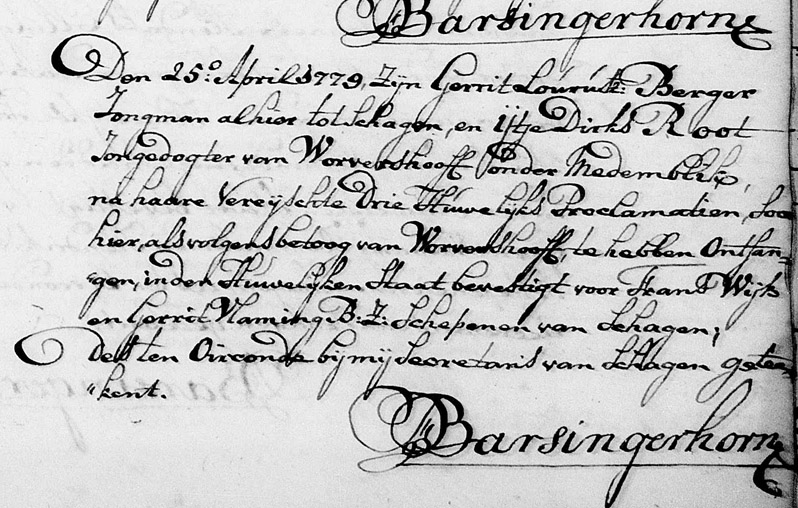 Barsingerhorn
Den 25º: April 1779, Zijn Gerrit Louruis: Berger
Jongman alhier tot Schagen, en IJtje Dirks Root
Jongedogter van Wervershooff, onder Medemblik,
na haare Vereijschte Drie Huwelijks Proclamatien, Soo
hier, als volgens betoog van Wervershooff, te hebben Ontfan-
gen, in den Huwelijken Staat bevestigt voor Frans Wijk
en Gerrit Naming B: Z: Schepenen van Schagen;
des ten Oirconde bij mij Secretaris van Schagen getee-
kent.
Barsingerhorn